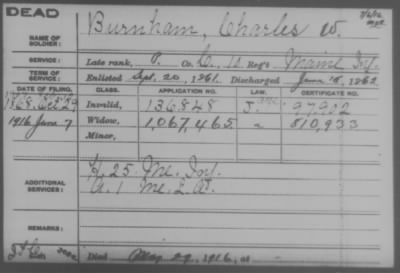 DEAD
NAME OF SOLDIER: Burnham, Charles W.
SERVICE: Late rank, P. Co. C, 10 Reg't Maine Inf.
TERM OF SERVICE: Enlisted Sept. 20, 1861. Discharged June 18, 1862
DATE OF FILING. CLASS. APPLICATION NO. LAW. CERTIFICATE NO.
1868 Oct 29 Invalid, 136.848
1916 June 7 Widow, 1,067,465 810,933
Minor,
ADDITIONAL SERVICES: H. 25 Me. Inf.
Me. L. A.
REMARKS:
Died May 29, 1916, at